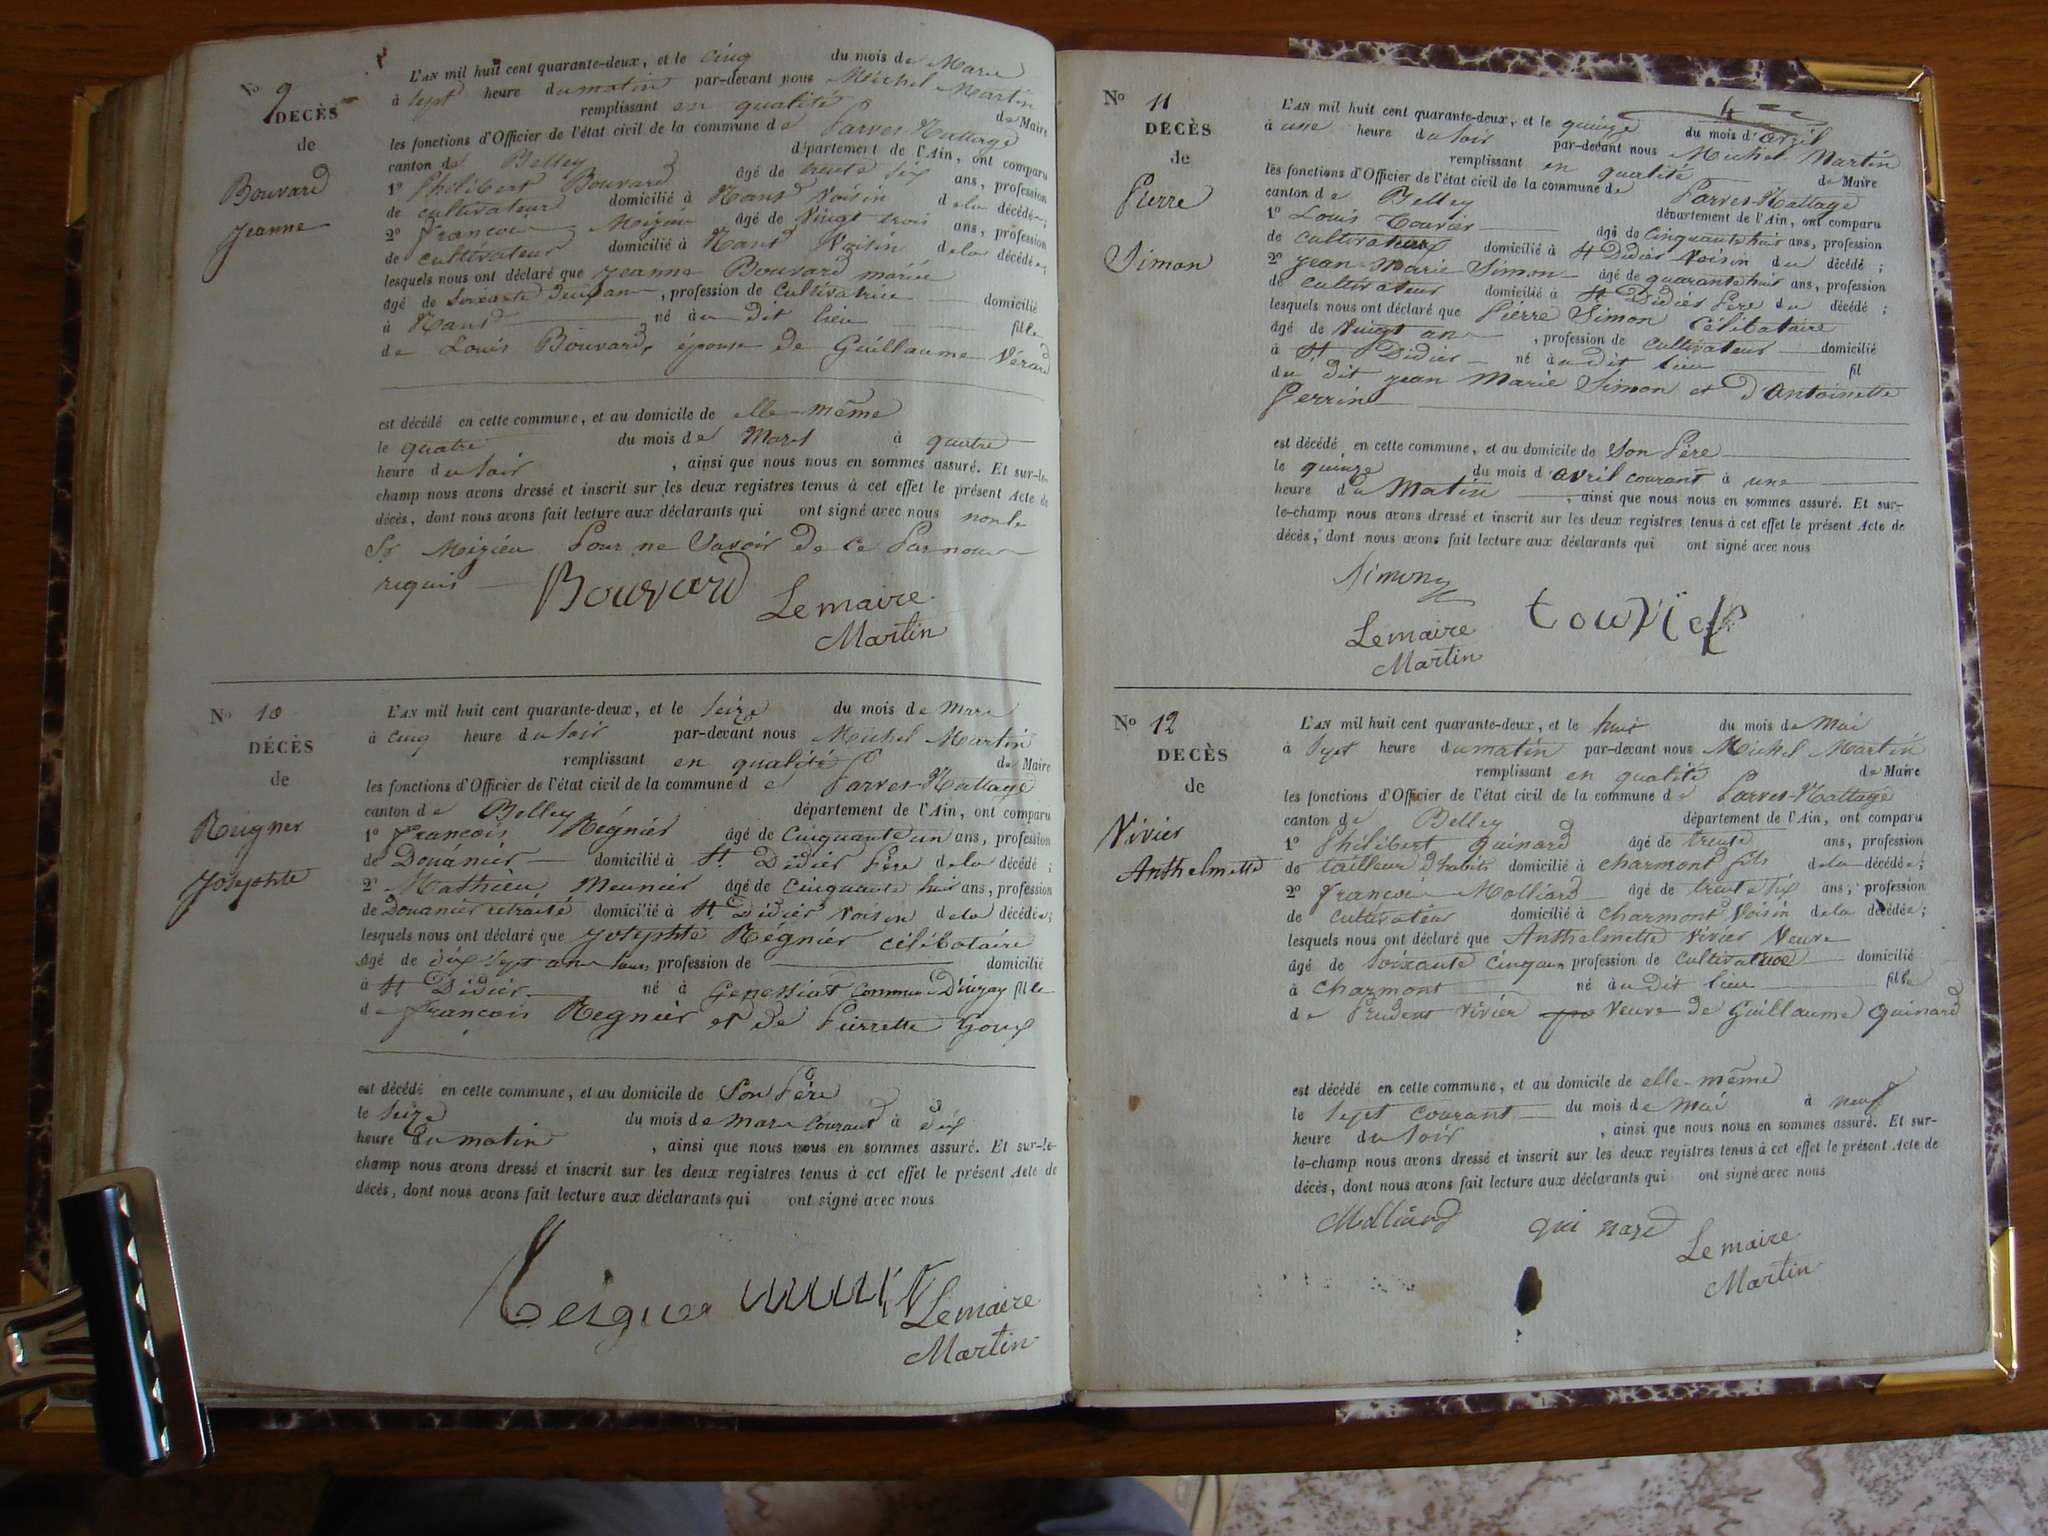 No 9
DECÈS
de
Bouvard
Jeanne
L'AN mil huit cent quarante-deux, et le cinq du mois de Mars
à sept heure du matin par-devant nous Michel Martin
remplissant en qualité de Maire
les fonctions d'Officier de l'état civil de la commune de Parves-Nattage
canton de Belley département de l'Ain, ont comparu
1º Philibert Bouvard âgé de trente six ans, profession
de cultivateur domicilié à Nant Voisin de la décédée;
2º françois Mizieu âgé de Vingt trois ans, profession
de cultivateur domicilié à Nant Voisin de la décédée;
lesquels nous ont déclaré que jeanne Bouvard mariée
âgé de Soixante deux ans, profession de Cultivatrice domicilié
à Nant né au dit lieu fille
de Louis Bouvard, épouse de Guillaume Vérard
est décédé en cette commune, et au domicile de elle-même
le quatre du mois de Mars à quatre
heure du soir, ainsi que nous nous en sommes assuré. Et sur-le-
champ nous avons dressé et inscrit sur les deux registres tenus à cet effet le présent Acte de
décès, dont nous avons fait lecture aux déclarants qui ont signé avec nous non le
Sr Mizieu Pour ne Savoir de ce Par nous
requis
Bouvard Lemaire
Martin
No 10
DÉCÈS
de
Reigner
Josephte
L'AN mil huit cent quarante-deux, et le seize du mois de Mars
à cinq heure du soir par-devant nous Michel Martin
remplissant en qualité de Maire
les fonctions d'Officier de l'état civil de la commune de Parves-Nattage
canton de Belley département de l'Ain, ont comparu
1º françois Régnier âgé de Cinquante un ans, profession
de Douánier domicilié à St Didier Père de la décédé;
2º Mathieu Meunier âgé de cinquante huit ans, profession
de Douanier retraité domicilié à St Didier voisin de la décédée;
lesquels nous ont déclaré que josephte Régnier célibataire
âgé de dix sept ans, profession de domicilié
à St Didier né à Genessiat Commune D'injoy fille
de françois Regnier et de Pierrette Goux
est décédé en cette commune, et au domicile de Son Père
le seize du mois de mars Courant à dix
heure du matin, ainsi que nous nous en sommes assuré. Et sur-le-
champ nous avons dressé et inscrit sur les deux registres tenus à cet effet le présent Acte de
décès, dont nous avons fait lecture aux déclarants qui ont signé avec nous
Lemaire
Martin
No 11
DECÈS
de
Pierre
Simon
L'AN mil huit cent quarante-deux, et le quinze du mois d'avril
à une heure du soir par-devant nous Michel Martin
remplissant en qualité de Maire
les fonctions d'Officier de l'état civil de la commune de Parves-Nattage
canton de Belley département de l'Ain, ont comparu
1º Louis Touvier âgé de Cinquante huit ans, profession
de cultivateur domicilié à St Didier Voisin du décédé;
2º jean-Marie Simon âgé de quarante huit ans, profession
de cultivateur domicilié à St Didier Père du décédé;
lesquels nous ont déclaré que Pierre Simon Célibataire
âgé de vingt ans, profession de cultivateur domicilié
à St Didier né au dit lieu fil
du dit jean Marie Simon et d'Antoinette
Perrin
est décédé en cette commune, et au domicile de Son Père
le quinze du mois d'avril courant à une
heure du Matin, ainsi que nous nous en sommes assuré. Et sur-
le-champ nous avons dressé et inscrit sur les deux registres tenus à cet effet le présent Acte de
décès, dont nous avons fait lecture aux déclarants qui ont signé avec nous
Simon
Lemaire
Martin
No 12
DECÈS
de
Vivier
Anthelmette
L'AN mil huit cent quarante-deux, et le huit du mois de Mai
à sept heure du matin par-devant nous Michel Martin
remplissant en qualité de Maire
les fonctions d'Officier de l'état civil de la commune de Parves-Nattage
canton de Belley département de l'Ain, ont comparu
1º Philibert quinard âgé de trente ans, profession
de tailleur d'habits domicilié à charmont fils de la décédée;
2º françois Molliard âgé de trente six ans, profession
de cultivateur domicilié à charmont Voisin de la décédée;
lesquels nous ont déclaré que Anthelmette Vivier Veuve
âgé de Soixante cinq ans profession de cultivatrice domicilié
à charmont né au dit lieu fille
de Prudent Vivier Veuve de Guillaume quinard
est décédé en cette commune, et au domicile de elle-même
le sept courant du mois de Mai à neuf
heure du soir, ainsi que nous nous en sommes assuré. Et sur-
le-champ nous avons dressé et inscrit sur les deux registres tenus à cet effet le présent Acte de
décès, dont nous avons fait lecture aux déclarants qui ont signé avec nous
Molliard qui nard Lemaire
Martin